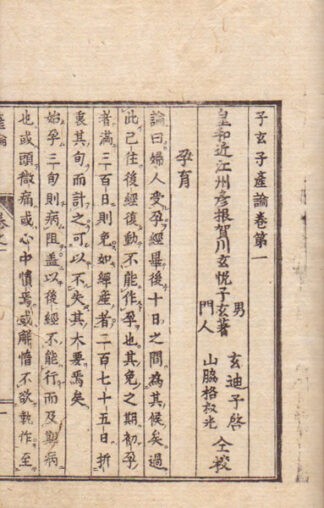 子玄子產論卷第一
皇和近江州彥根賀川玄悅子玄著
男 玄迪子啓
門人 山脇格叔光 仝校
孕育
論曰婦人受孕經畢後十日之間為其候矣過
此已往後經復動不能作孕也其免之期初孕
者滿三百日則免如經產者二百七十五日折
衷其旬而計之可以不失其大要焉矣
始孕三旬則病阻盖以後經不能行而及期病
也或頭微痛或心中憒焉或懈惰不欲執作至
產論
卷之一